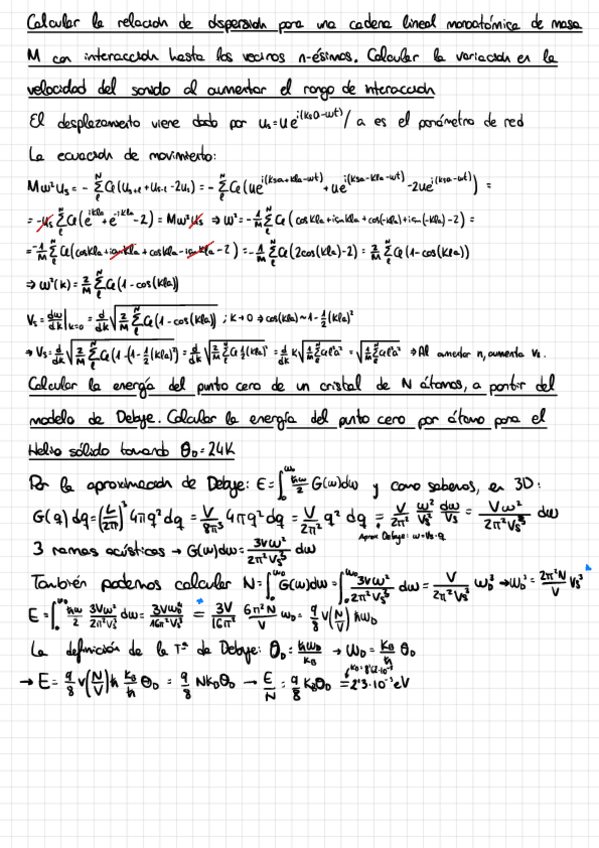 Calcular la relación de dispersión para una cadena lineal monoatómica de masa
M con interacción hasta los vecinos n-ésimos. Calcular la variación en la
velocidad del sonido al aumentar el rango de interacción
El desplazamiento viene dado por u_s = u e^{i(ksa-wt)} / a es el parámetro de red
La ecuación de movimiento:
Mω²u_s = - Σ_l^N C_l(u_{s+l} + u_{s-l} - 2u_s) = - Σ_l^N C_l(ue^{i(ksa+kla-wt)} + ue^{i(ksa-kla-wt)} - 2ue^{i(ksa-wt)}) =
= -u_s Σ_l^N C_l(e^{ikla} + e^{-ikla} - 2) = Mω²u_s ⇒ ω² = -1/M Σ_l^N C_l(cos kla + i sin kla + cos(-kla) + i sin(-kla) - 2) =
= -1/M Σ_l^N C_l(cos kla + i sin kla + cos kla - i sin kla - 2) = -1/M Σ_l^N C_l(2cos(kla) - 2) = 2/M Σ_l^N C_l(1 - cos(kla))
⇒ ω²(k) = 2/M Σ_l^N C_l(1 - cos(kla))
V_s = dω/dk |_{k=0} = d/dk √(2/M Σ_l^N C_l(1 - cos(kla))) ; k→0 ⇒ cos(kla) ~ 1 - 1/2(kla)²
→ V_s = d/dk √(2/M Σ_l^N C_l(1 - (1 - 1/2(kla)²))) = d/dk √(2/M Σ_l^N C_l 1/2(kla)²) = d/dk k √(1/M Σ_l^N C_l l²a²) = √(1/M Σ_l^N C_l l²a²) ⇒ Al aumentar n, aumenta V_s.
Calcular la energía del punto cero de un cristal de N átomos, a partir del
modelo de Debye. Calcular la energía del punto cero por átomo para el
Helio sólido tomando θ_D = 24K
Por la aproximación de Debye: E = ∫_0^{ω_D} ħω/2 G(ω)dω y como sabemos, en 3D:
G(q) dq = (L/2π)³ 4πq² dq = V/8π³ 4πq² dq = V/2π² q² dq = V/2π² ω²/V_s² dω/V_s = Vω²/2π²V_s³ dω
Aprox Debye: ω = V_s·q
3 ramas acústicas → G(ω)dω = 3Vω²/2π²V_s³ dω
También podemos calcular N = ∫_0^{ω_D} G(ω)dω = ∫_0^{ω_D} 3Vω²/2π²V_s³ dω = V/2π²V_s³ ω_D³ → ω_D³ = 2π²N/V V_s³ *
E = ∫_0^{ω_D} ħω/2 3Vω²/2π²V_s³ dω = 3Vω_D⁴/16π²V_s³ =* 3V/16π² 6π²N/V ω_D = 9/8 V(N/V) ħω_D
La definición de la Tª de Debye: θ_D = ħω_D/k_B → ω_D = k_B/ħ θ_D
→ E = 9/8 V(N/V) ħ k_B/ħ θ_D = 9/8 N k_B θ_D → E/N = 9/8 k_B θ_D = 2'3·10⁻³ eV